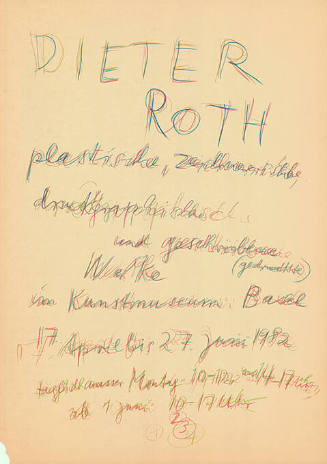 DIETER
ROTH
plastische, zeichnerische,
druckgraphische
und geschriebene
Werke (gedruckte)
im Kunstmuseum Basel
17. April bis 27. Juni 1982
täglich ausser Montag 10-12 und 14-17 Uhr
ab 1. Juni: 10-17 Uhr